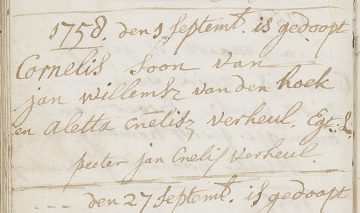 1758. den 1 septembr. is gedoopt
Cornelis soon van
jan willemsz van den hoek
en aletta cnelisz verheul. Egt:L.
peeter jan Cnelisz verheul.
den 27 septembr. is gedoopt